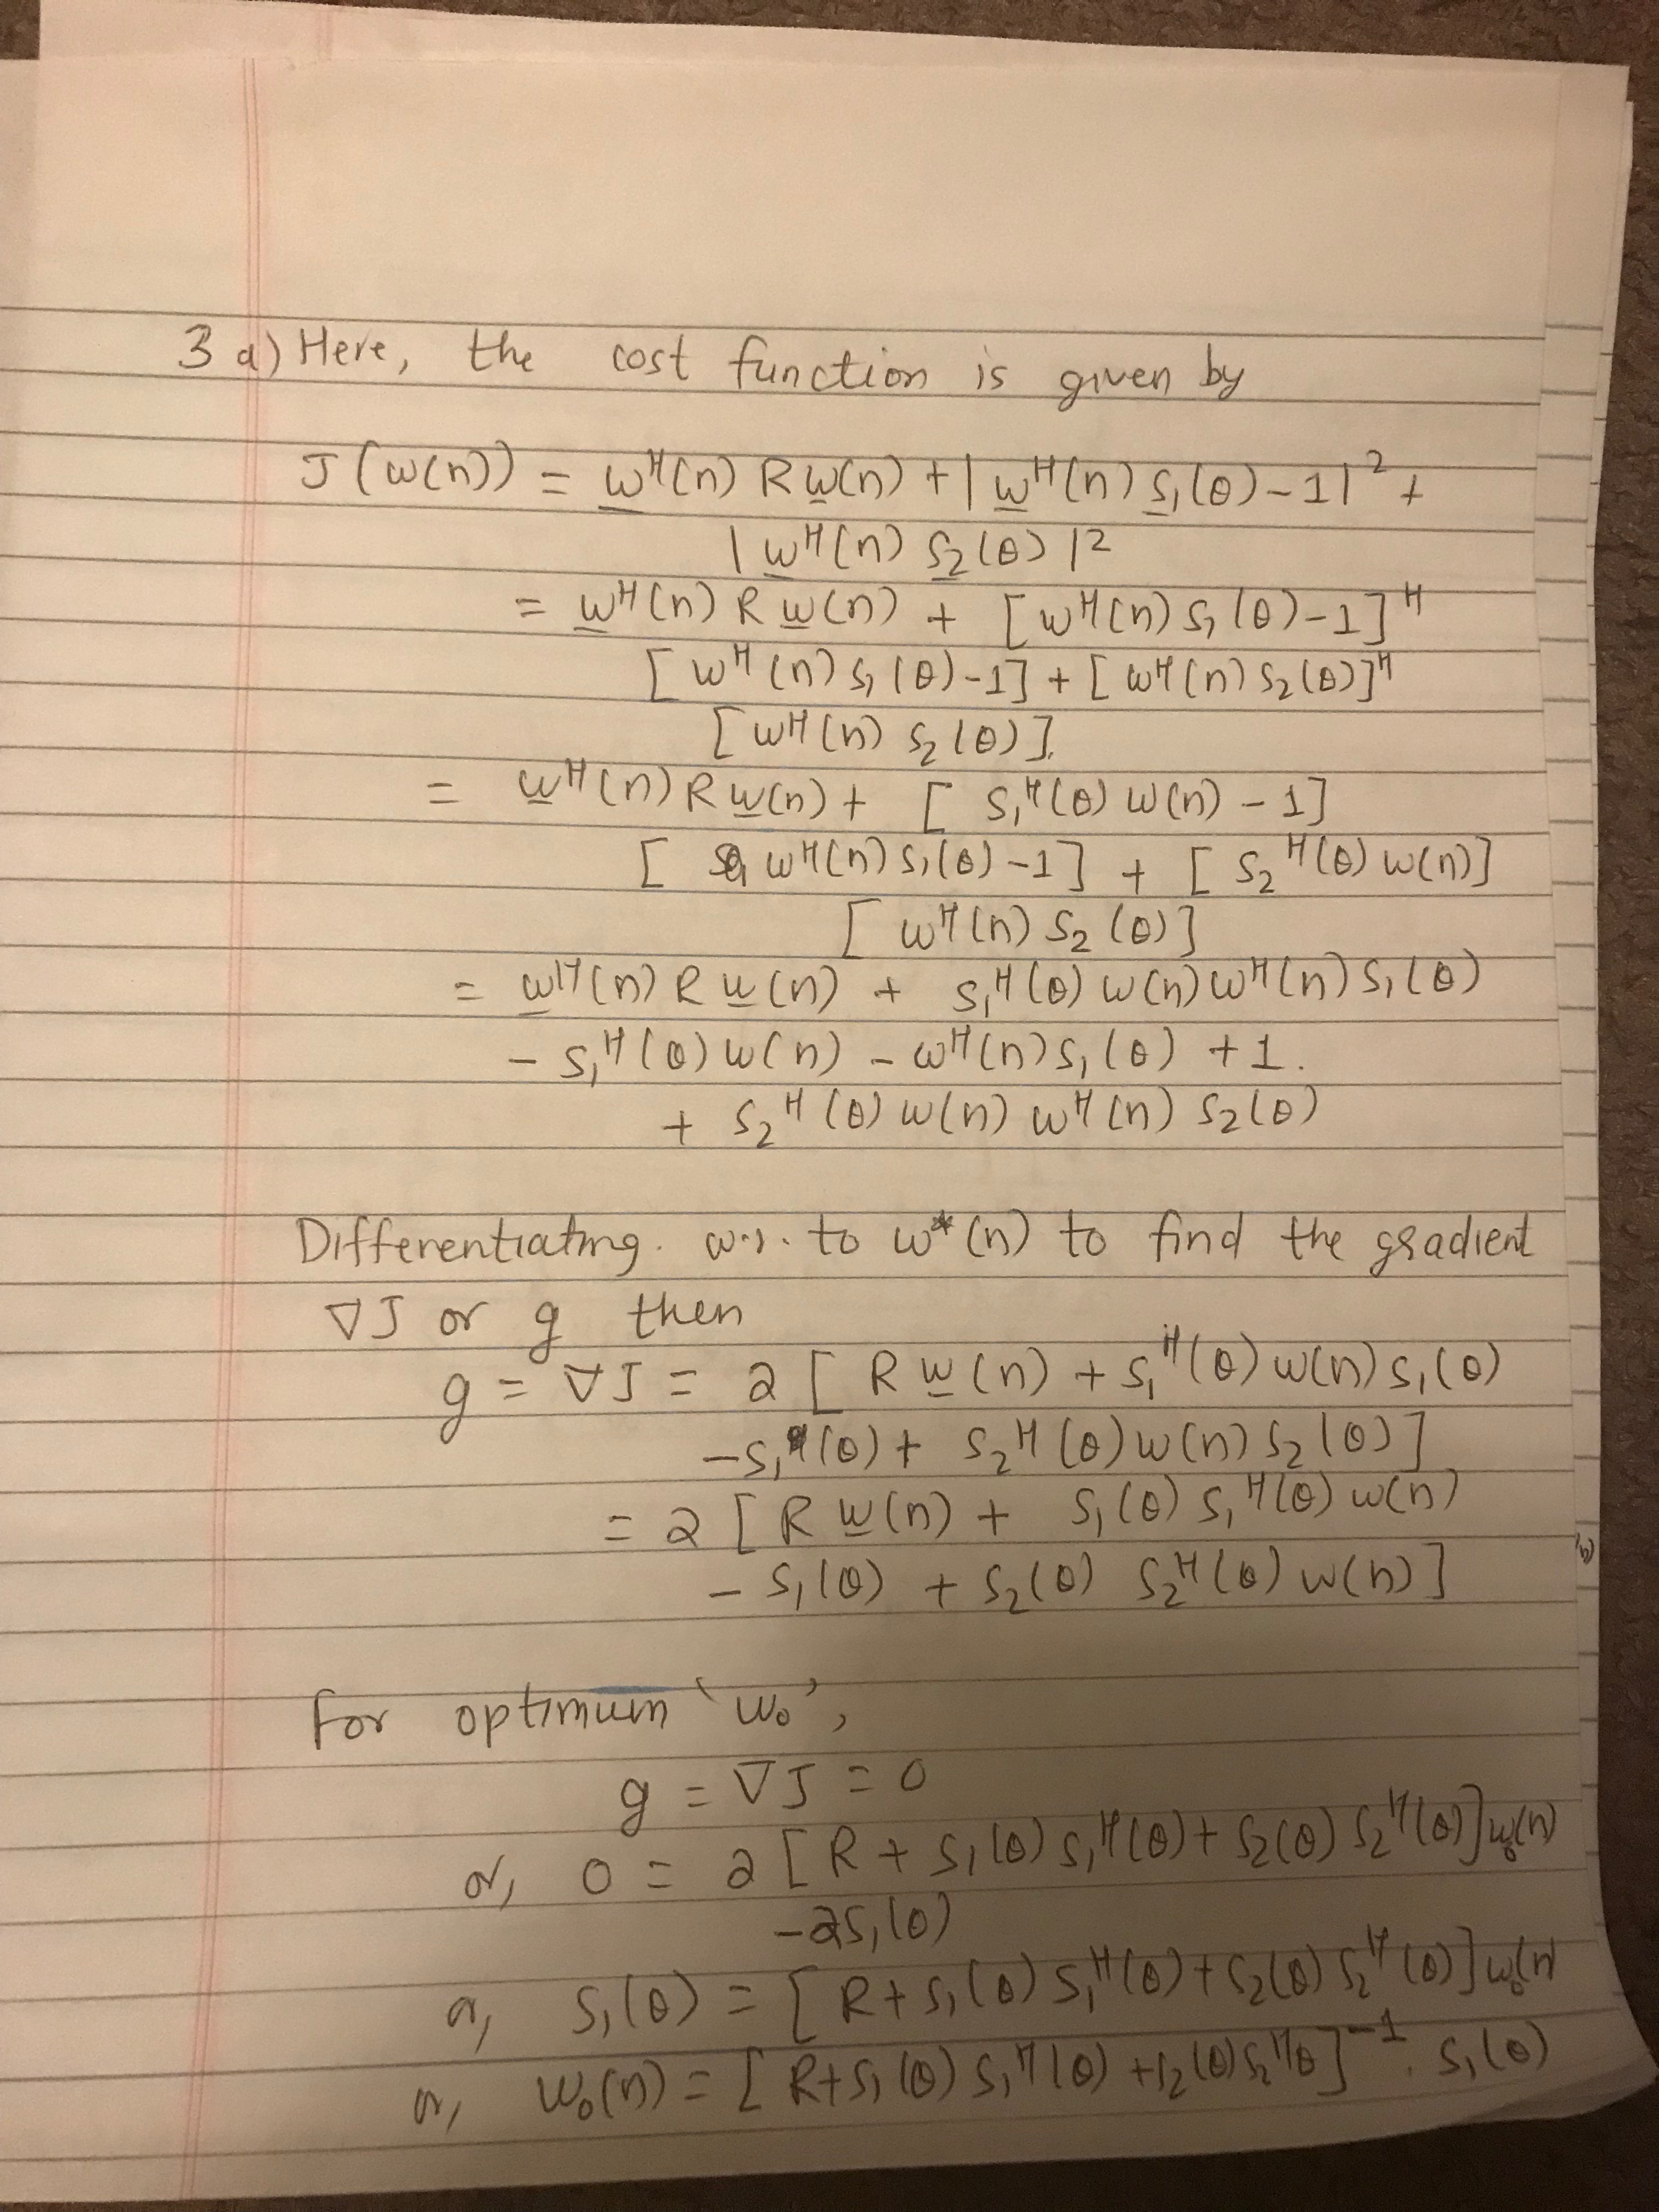 3 a) Here, the cost function is given by
J(w(n)) = w^H(n) R w(n) + | w^H(n) s₁(θ) - 1 |² +
| w^H(n) s₂(θ) |²
= w^H(n) R w(n) + [ w^H(n) s₁(θ) - 1 ]^H
[ w^H(n) s₁(θ) - 1 ] + [ w^H(n) s₂(θ) ]^H
[ w^H(n) s₂(θ) ].
= w^H(n) R w(n) + [ s₁^H(θ) w(n) - 1 ]
[ w^H(n) s₁(θ) - 1 ] + [ s₂^H(θ) w(n) ]
[ w^H(n) s₂(θ) ]
= w^H(n) R w(n) + s₁^H(θ) w(n) w^H(n) s₁(θ)
- s₁^H(θ) w(n) - w^H(n) s₁(θ) + 1.
+ s₂^H(θ) w(n) w^H(n) s₂(θ)
Differentiating. w.r. to w*(n) to find the gradient
∇J or g then
g = ∇J = 2 [ R w(n) + s₁^H(θ) w(n) s₁(θ)
- s₁(θ) + s₂^H(θ) w(n) s₂(θ) ]
= 2 [ R w(n) + s₁(θ) s₁^H(θ) w(n)
- s₁(θ) + s₂(θ) s₂^H(θ) w(n) ]
For optimum 'w₀',
g = ∇J = 0
or, 0 = 2 [ R + s₁(θ) s₁^H(θ) + s₂(θ) s₂^H(θ) ] w₀(n)
- 2s₁(θ)
or, s₁(θ) = [ R + s₁(θ) s₁^H(θ) + s₂(θ) s₂^H(θ) ] w₀(n)
or, w₀(n) = [ R + s₁(θ) s₁^H(θ) + s₂(θ) s₂^Hθ ]⁻¹ . s₁(θ)